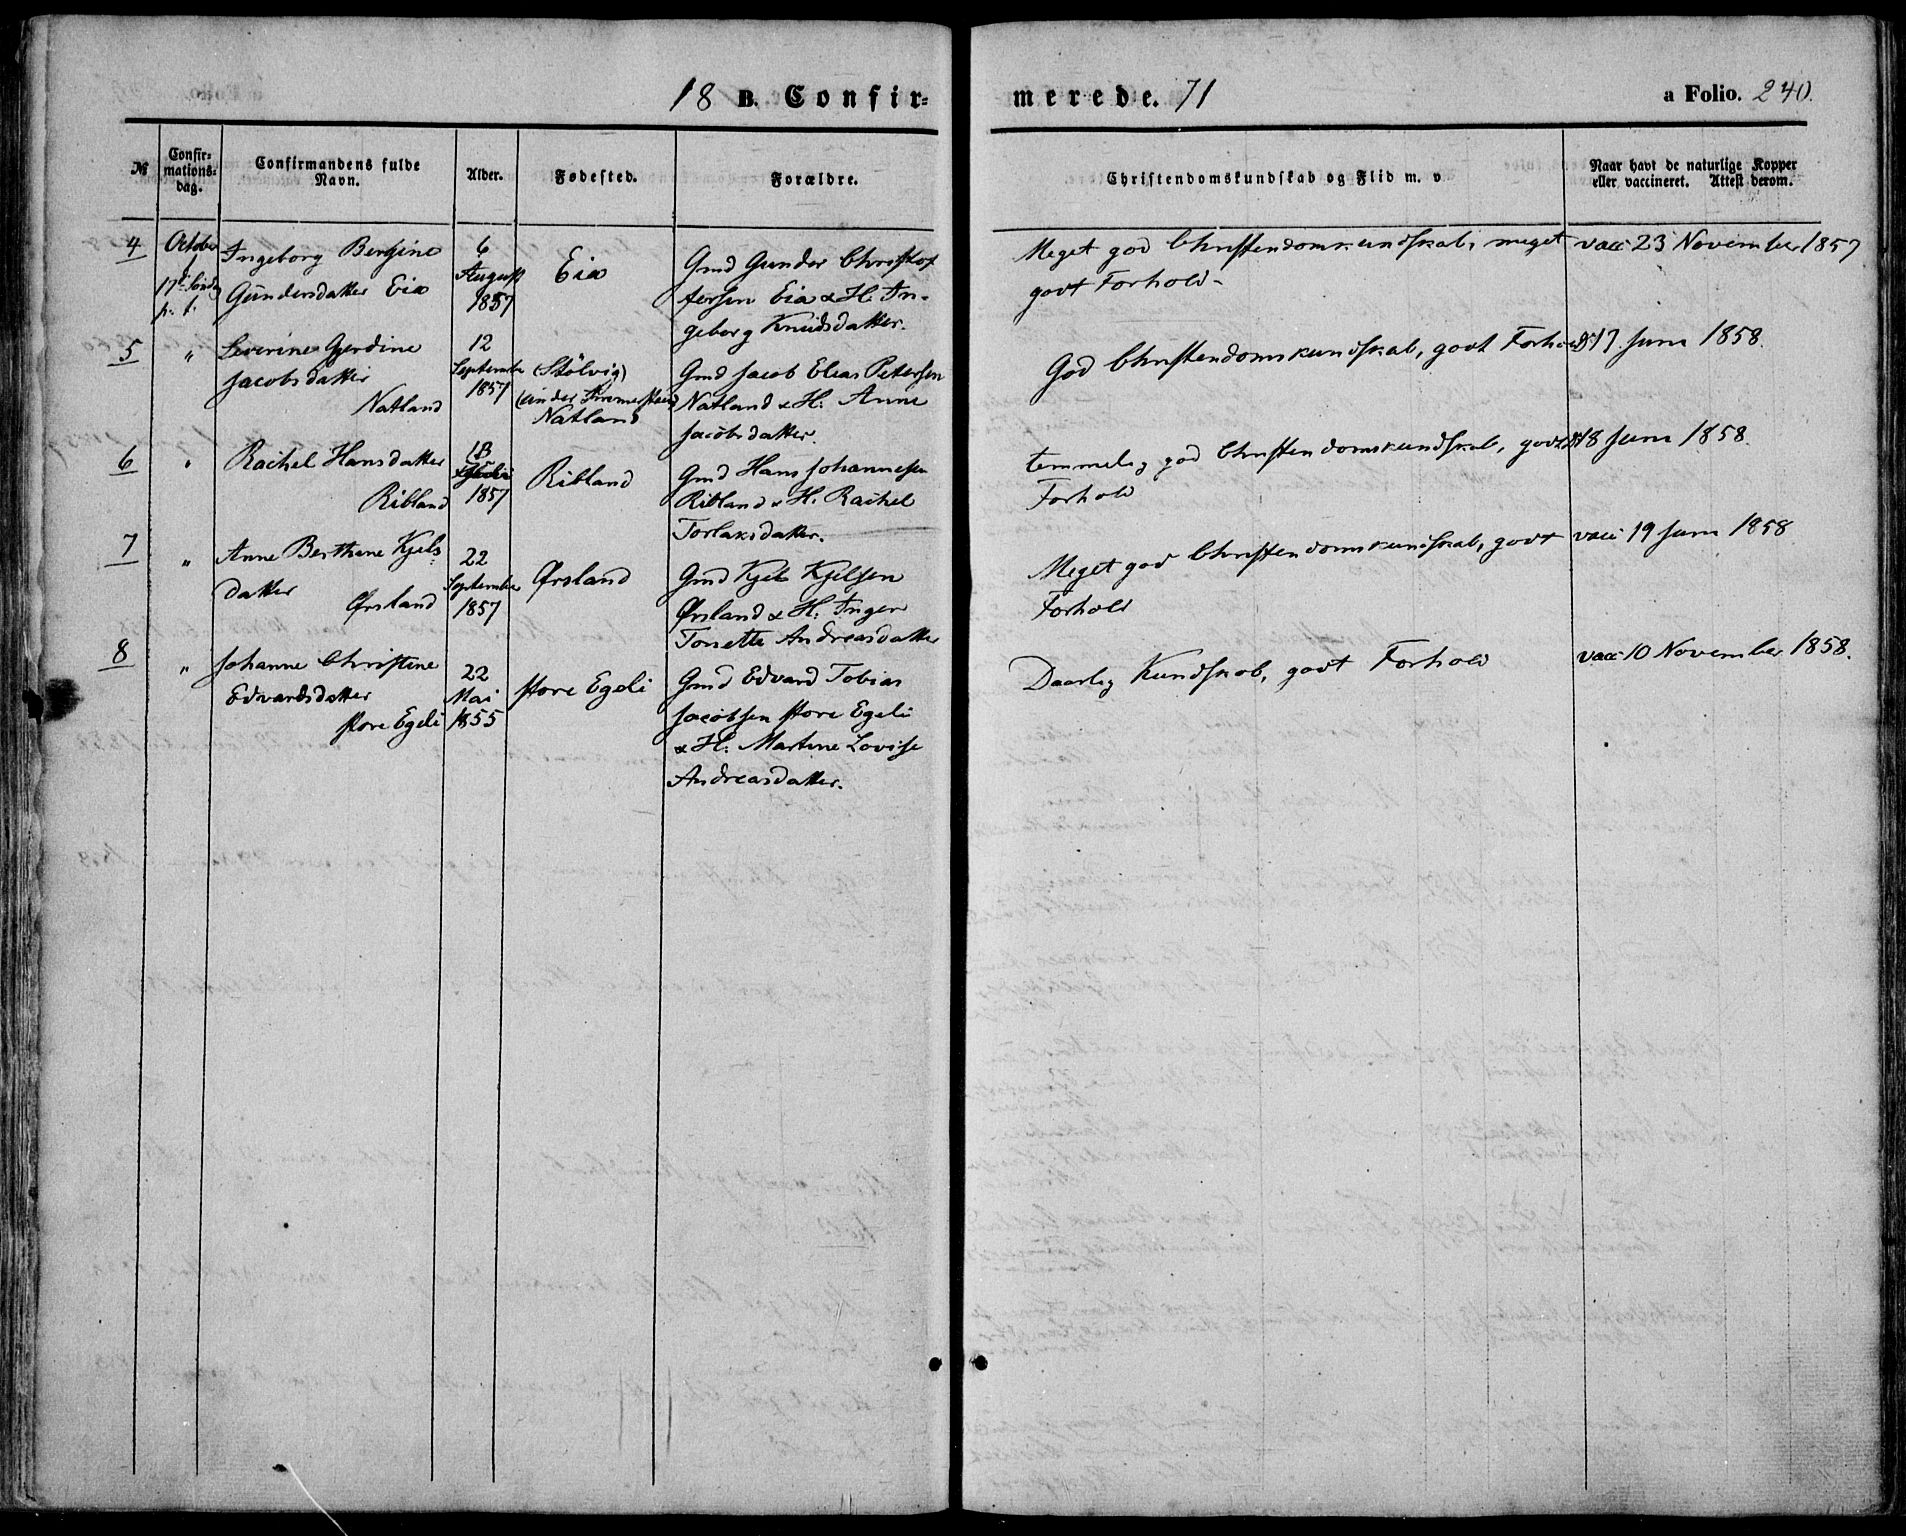 18 B. Confir-
merede. 71
a Folio. 240.
№
Confir-
mations-
dag.
Confirmandens fulde
Navn.
Alder.
Fødested.
Forældre.
Christendomskundskab og Flid m. v
Naar havt de naturlige Kopper
eller vaccineret. Attest derom.
4
October
1
17d Søndg
p. t.
Ingeborg Bergine
Gundersdatter Eia
6
August
1857
Eia
Gmd Gunder Christof
fersen Eia & H. In-
geborg Knudsdatter.
Meget god Christendomskundskab, meget
godt Forhold-
vacc 23 November 1857
5
"
Severine Gjerdine
Jacobsdatter
Natland
12
September
1857
(Stølvig)
Natland
Gmd Jacob Elias Petersen
Natland & H. Anne
Jacobsdatter.
God Christendomskundskab, godt Forhold
17. Juni 1858.
6
"
Rachel Hansdatter
Ribland
1857
Ribland
Gmd Hans Johannesen
Ribland & H. Rachel
Torlaksdatter.
temmelig god Christendomskundskab, godt
Forhold
18 Juni 1858.
7
"
Anne Berthine Kjels
datter
Ørsland
22
September
1857
Ørsland
Gmd Kjel Kjelsen
Ørsland & H. Inger
Tonette Andreasdatter
Meget god Christendomskundskab, godt
Forhold
vacc 19 Juni 1858
8
"
Johanne Christine
Edvardsdatter
store Egeli
22
Mai
1855
store Egeli
Gmd Edvard Tobias
Jacobsen store Egeli
& H. Martine Lovise
Andreasdatter.
Daarlig Kundskab, godt Forhold
vacc 10 November 1858.